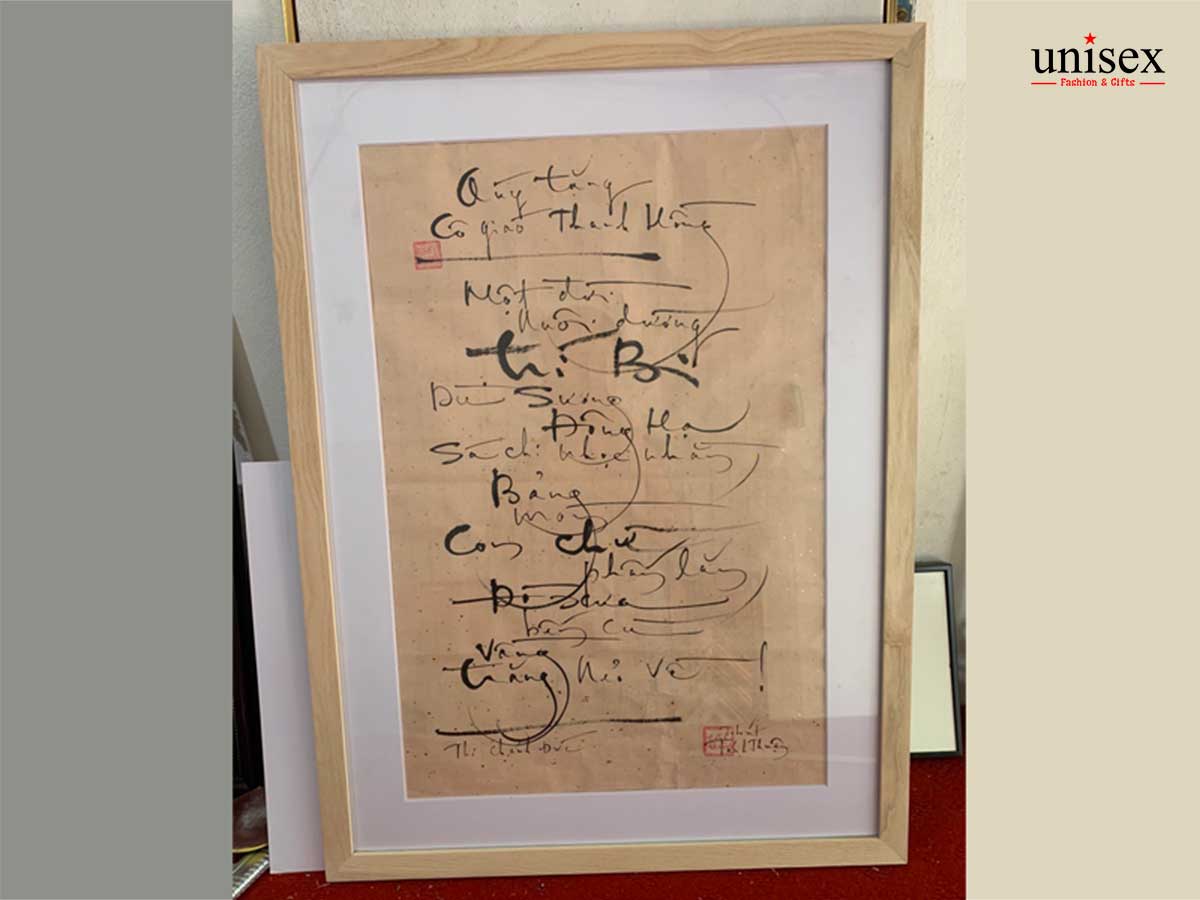 unisex
Fashion & Gifts
Qúy tặng
Cô giáo Thanh Hồng
Một đời
Nuôi dưỡng
trí Bi
Dù Sương
Đông Hạ
Sá chi nhọc nhằn
Bảng
mòn
Con chữ
phẳng lặng
Đò đưa
bến cũ
Vầng
trăng Nẻo Về !
Thơ Chánh Đức